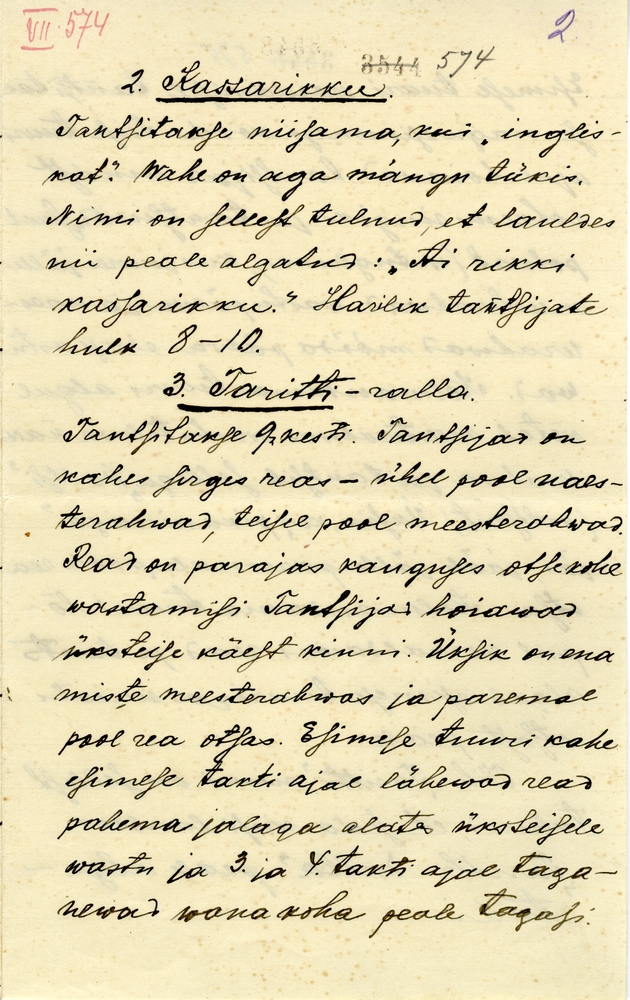 VII 574
2
3544 574
2. Kassarikku.
Tantsitakse niisama, kui „inglis-
kat". Wahe on aga mängu tükis.
Nimi on sellest tulnud, et lauldes
nii peale algatud: „Ai rikki
kassarikku." Harilik tantsijate
hulk 8–10.
3. Taritti-ralla.
Tantsitakse 9kesti. Tantsijad on
kahes sirges reas – ühel pool naes-
terahwad, teisel pool meesterahwad.
Read on parajas kauguses otsekohe
wastamisi. Tantsijad hoiawad
üksteise käest kinni. Üksik on ena
miste meesterahwas ja paremal
pool rea otsas. Esimese tuuri kahe
esimese takti ajal lähewad read
pahema jalaga alates üksteisele
wastu ja 3. ja 4. takti ajal taga-
newad wana koha peale tagasi.